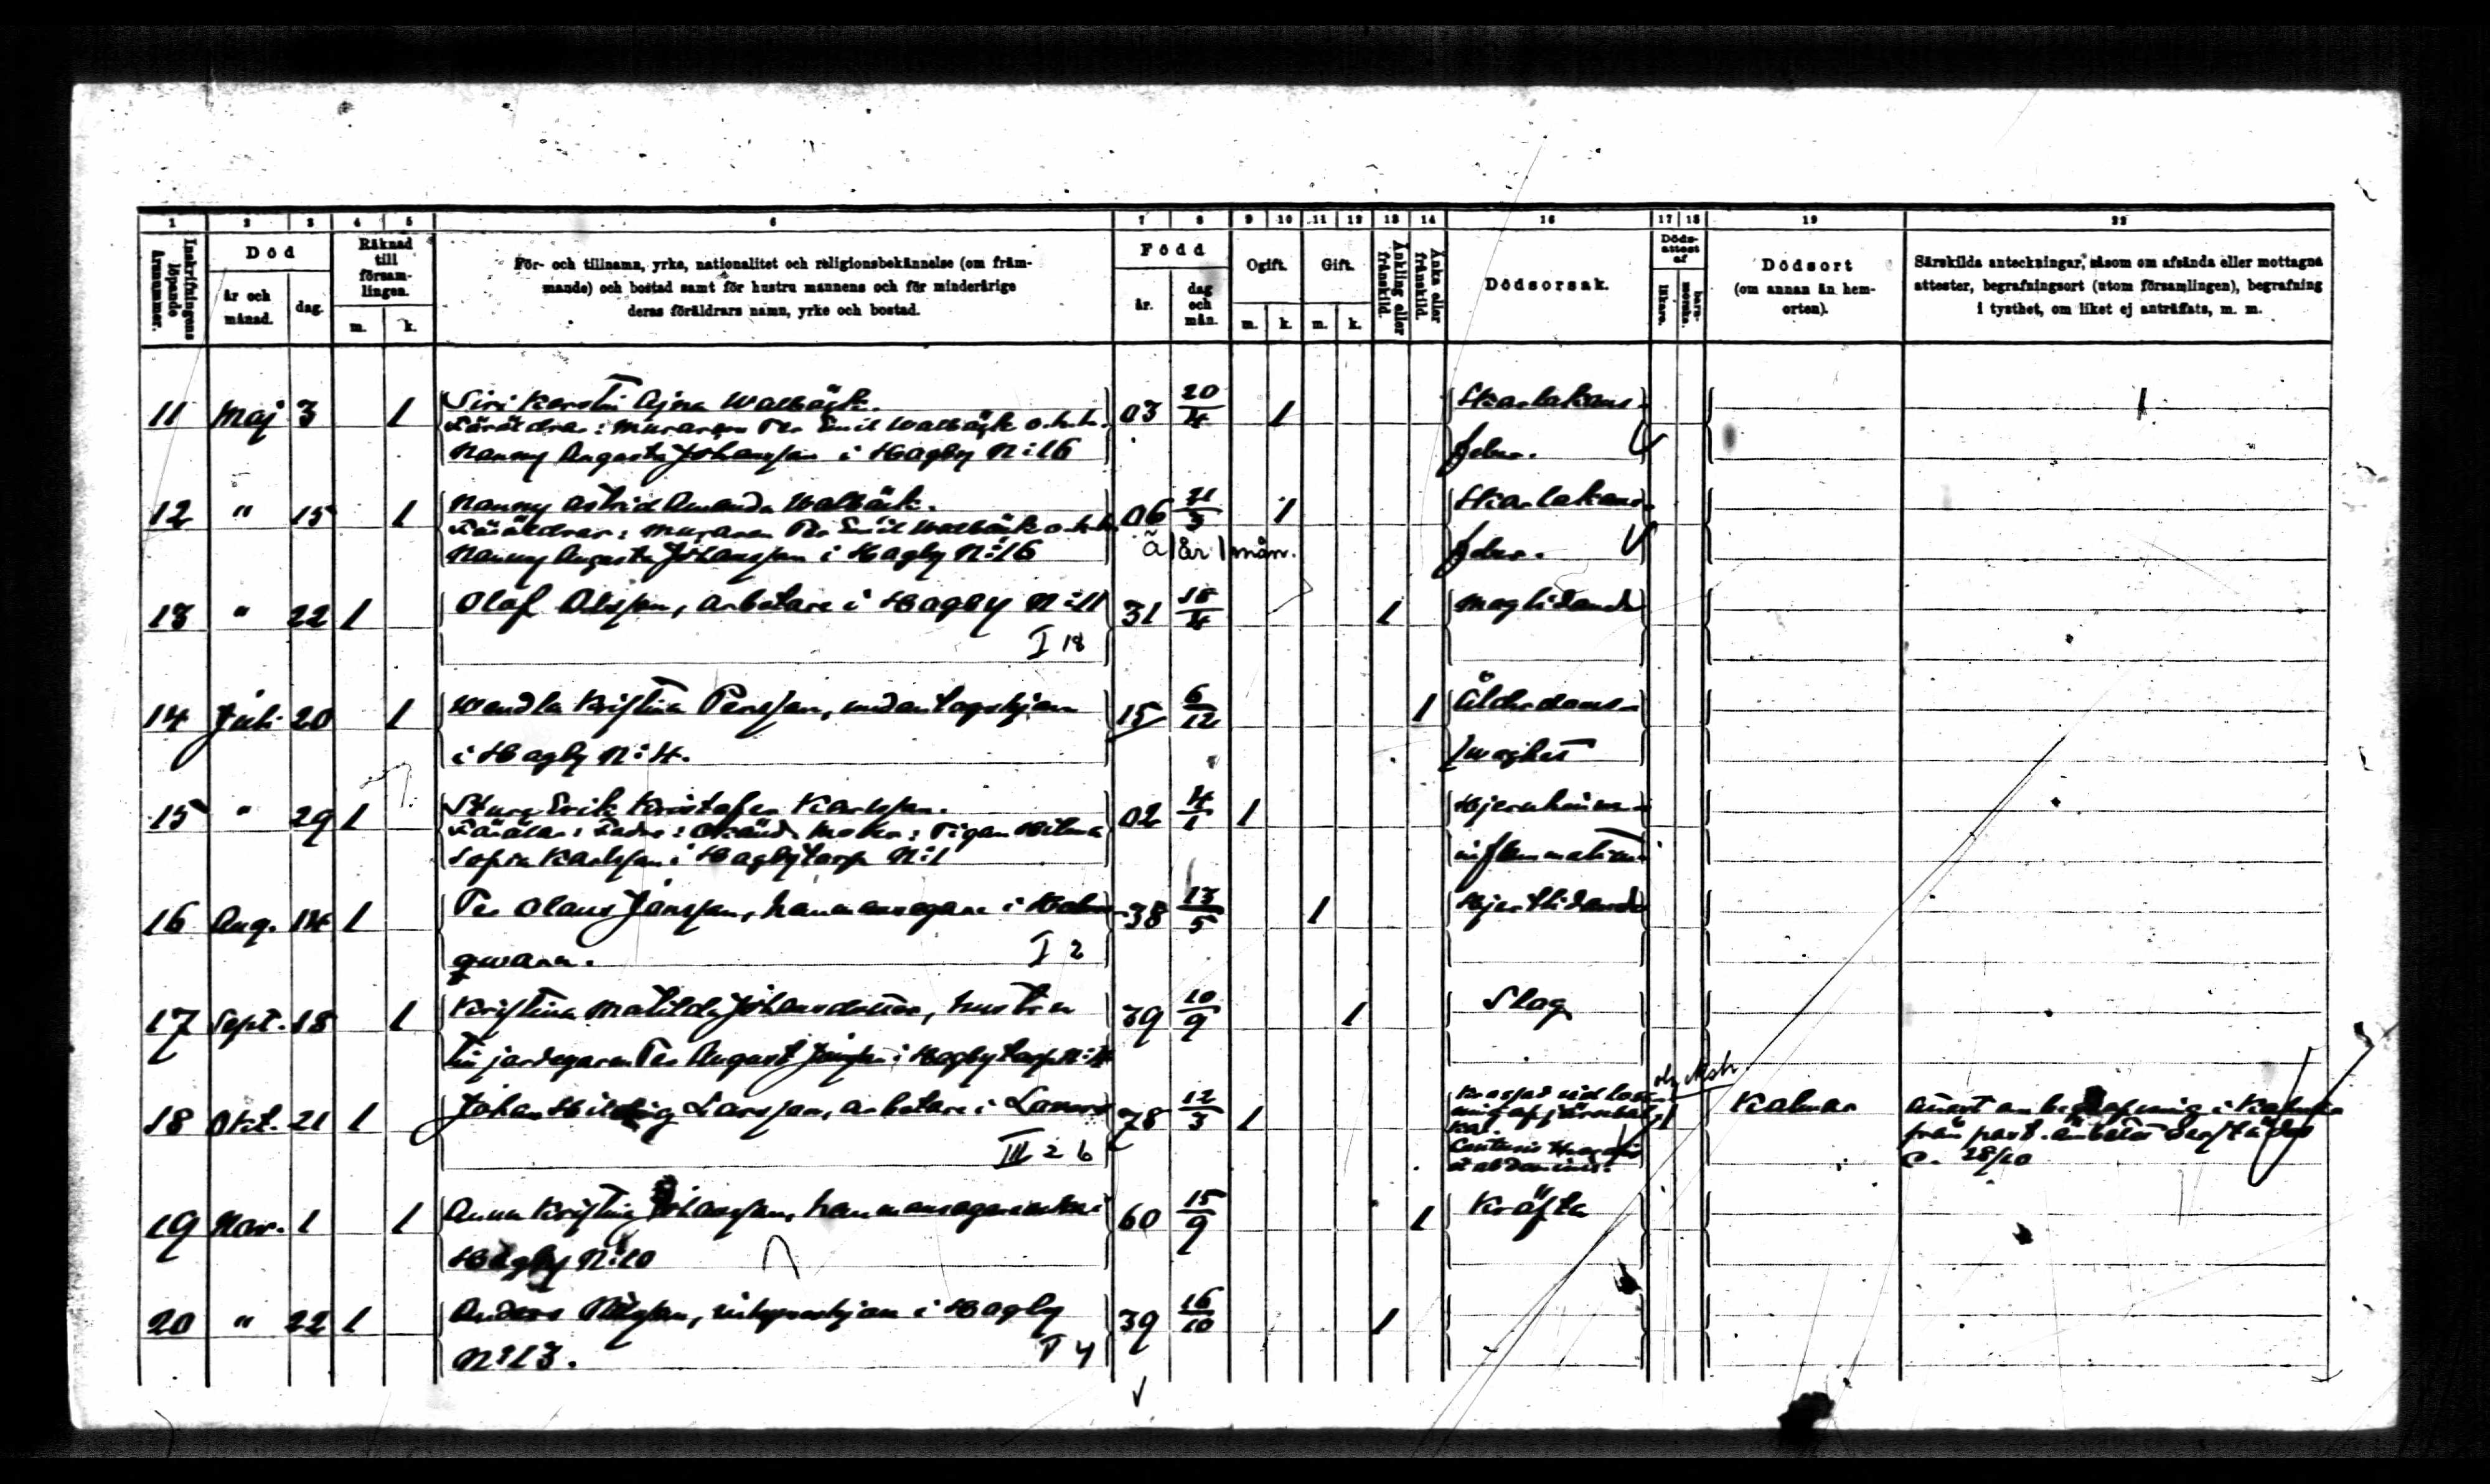 1 2 3 4 5 6 7 8 9 10 11 12 13 14 16 17 18 19 22
Inskrifningens löpande årsnummer.
Död
år och månad.
dag.
Räknad till församlingen.
m. k.
För- och tillnamn, yrke, nationalitet och religionsbekännelse (om främ-
mande) och bostad samt för hustru mannens och för minderårige
deras föräldrars namn, yrke och bostad.
Född
år.
dag och mån.
Ogift.
m. k.
Gift.
m. k.
Änkling eller frånskild.
Änka eller frånskild.
Dödsorsak.
Döds-attest af
läkare.
barn-morska.
Dödsort
(om annan än hem-
orten).
Särskilda anteckningar, såsom om afsända eller mottagna
attester, begrafningsort (utom församlingen), begrafning
i tysthet, om liket ej anträffats, m. m.
11 Maj 3 1 Siri Kerstin Ajna Walbäck. 03 20/4 1 Skarlakans-
Föräldrar: Muraren Per Emil Walbäck o.h.h.
Nanny Augusta Johansson i Hagby N:16 feber.
12 " 15 1 Nanny Astrid Amanda Walbäck. 06 21/3 1 Skarlakans-
Föräldrar: Muraren Per Emil Walbäck o.h.h.
Nanny Augusta Johansson i Hagby N:16 å 1 år 1 mån. feber.
13 " 22 1 Olaf Olsson, arbetare i Hagby N:11 31 18/4 1 Maglidande
I 18
14 Juli 20 1 Wendla Kristina Persson, undantagshjon 15 6/12 1 Ålderdoms-
i Hagby N:4. swaghet
15 " 29 1 Sture Erik Kristofer Karlsson. 02 4/1 1 Hjernhinne-
Föräldr: Fader: Okänd. Moder: Pigan Hilma
Sofia Karlsson i Hagbytorp N:1 inflammation
16 Aug. 14 1 Per Olaus Jonsson, hemmansegare i Holm- 38 13/5 1 Hjertlidande
qwarn. I 2
17 Sept. 18 1 Kristina Matilda Johansdotter, hustru 39 10/9 1 Slag
till jordegaren Per August Jonsson i Hagbytorp N:4
18 Okt. 21 1 Johan Hilding Larsson, arbetare i 78 12/3 1 Krossad vid loss- olycksh.
ning af järnbal- 1 Kalmar
III 2 b kar.
Contusio Thoracis
et abdominis.
Attest om begrafning i Kalmar
från past. ämbetet derstädes
d. 28/10
19 Nov. 1 1 Anna Kristina Johansson, hemmansegareenka i 60 15/9 1 Kräfta
Hagby N:10
20 " 22 1 Anders Nilsson, i Hagby 39 16/10 1
N:13. I 4